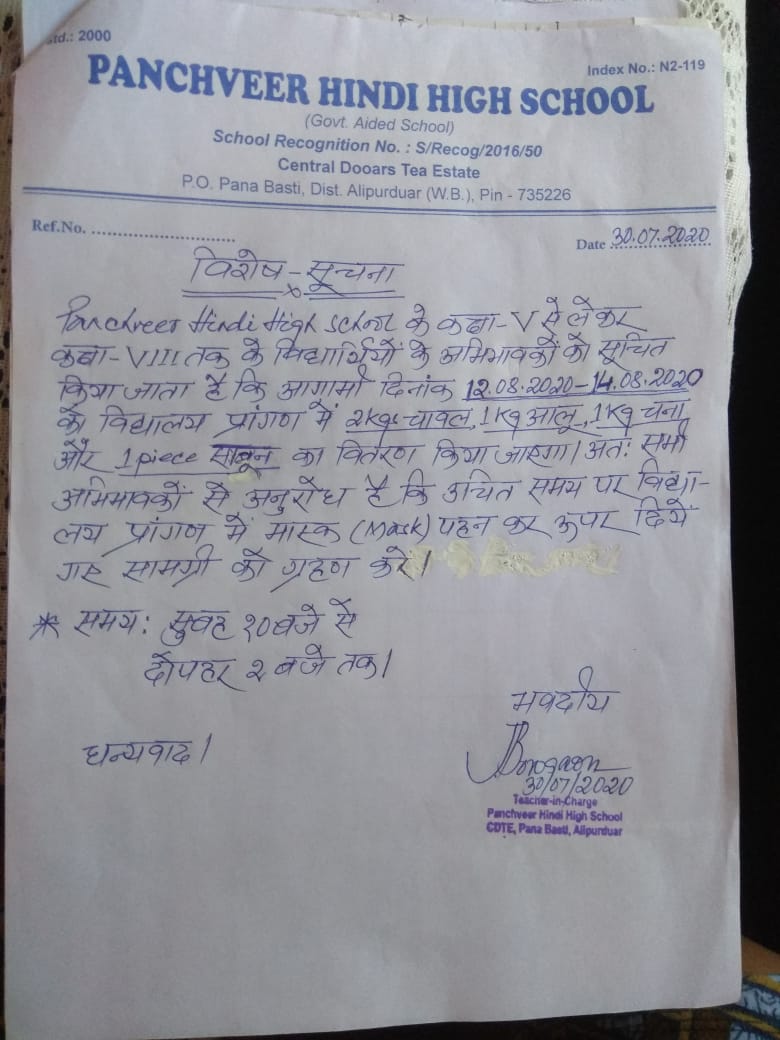 td.: 2000
Index No.: N2-119
PANCHVEER HINDI HIGH SCHOOL
(Govt. Aided School)
School Recognition No. : S/Recog/2016/50
Central Dooars Tea Estate
P.O. Pana Basti, Dist. Alipurduar (W.B.), Pin - 735226
Ref.No. ....................................
Date 30.07.2020
विशेष-सूचना
Panchveer Hindi High School के कक्षा-V से लेकर
कक्षा-VIII तक के विद्यार्थियों के अभिभावकों को सूचित
किया जाता है कि आगामी दिनांक 12.08.2020-14.08.2020
को विद्यालय प्रांगण में 2kg चावल, 1kg आलू, 1kg चना
और 1 piece साबून का वितरण किया जाएगा। अतः सभी
अभिभावकों से अनुरोध है कि उचित समय पर विद्या-
लय प्रांगण में मास्क (Mask) पहन कर ऊपर दिये
गए सामग्री को ग्रहण करें।
* समय: सुबह १० बजे से
दोपहर २ बजे तक।
भवदीय
धन्यवाद।
30/07/2020
Teacher-in-Charge
Panchveer Hindi High School
CDTE, Pana Basti, Alipurduar